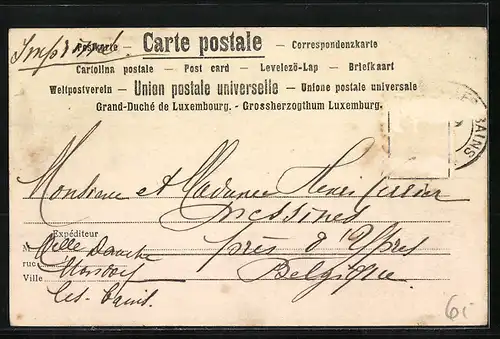 Imprimé.
Postkarte — Carte postale — Correspondenzkarte
Cartolina postale — Post card — Levelezö-Lap — Briefkaart
Weltpostverein — Union postale universelle — Unione postale universale
Grand-Duché de Luxembourg. - Grossherzogthum Luxemburg.
BAINS
Monsieur et Madame Henri
Messines
près d'Ypres
Belgique.
Expéditeur
M
rue
Ville
Mlle
Mondorf
les-Bains.
6.-